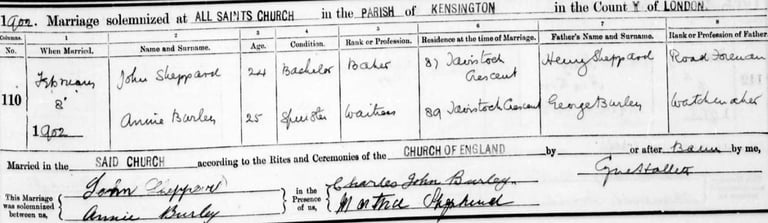 1902. Marriage solemnized at ALL SAINTS CHURCH in the PARISH of KENSINGTON in the County of LONDON.
Columns. 1 2 3 4 5 6 7 8
No. When Married. Name and Surname. Age. Condition. Rank or Profession. Residence at the time of Marriage. Father's Name and Surname. Rank or Profession of Father.
February John Sheppard 24 Bachelor Baker 87 Tavistock Henry Sheppard Road Foreman
Crescent
110 8
1902 Annie Burley 25 Spinster Waitress 89 Tavistock Crescent George Burley Watchmaker
Married in the SAID CHURCH according to the Rites and Ceremonies of the CHURCH OF ENGLAND by or after Banns by me,
This Marriage was solemnized between us, John Sheppard in the Presence of us, Charles John Burley
Annie Burley Martha Sheppard